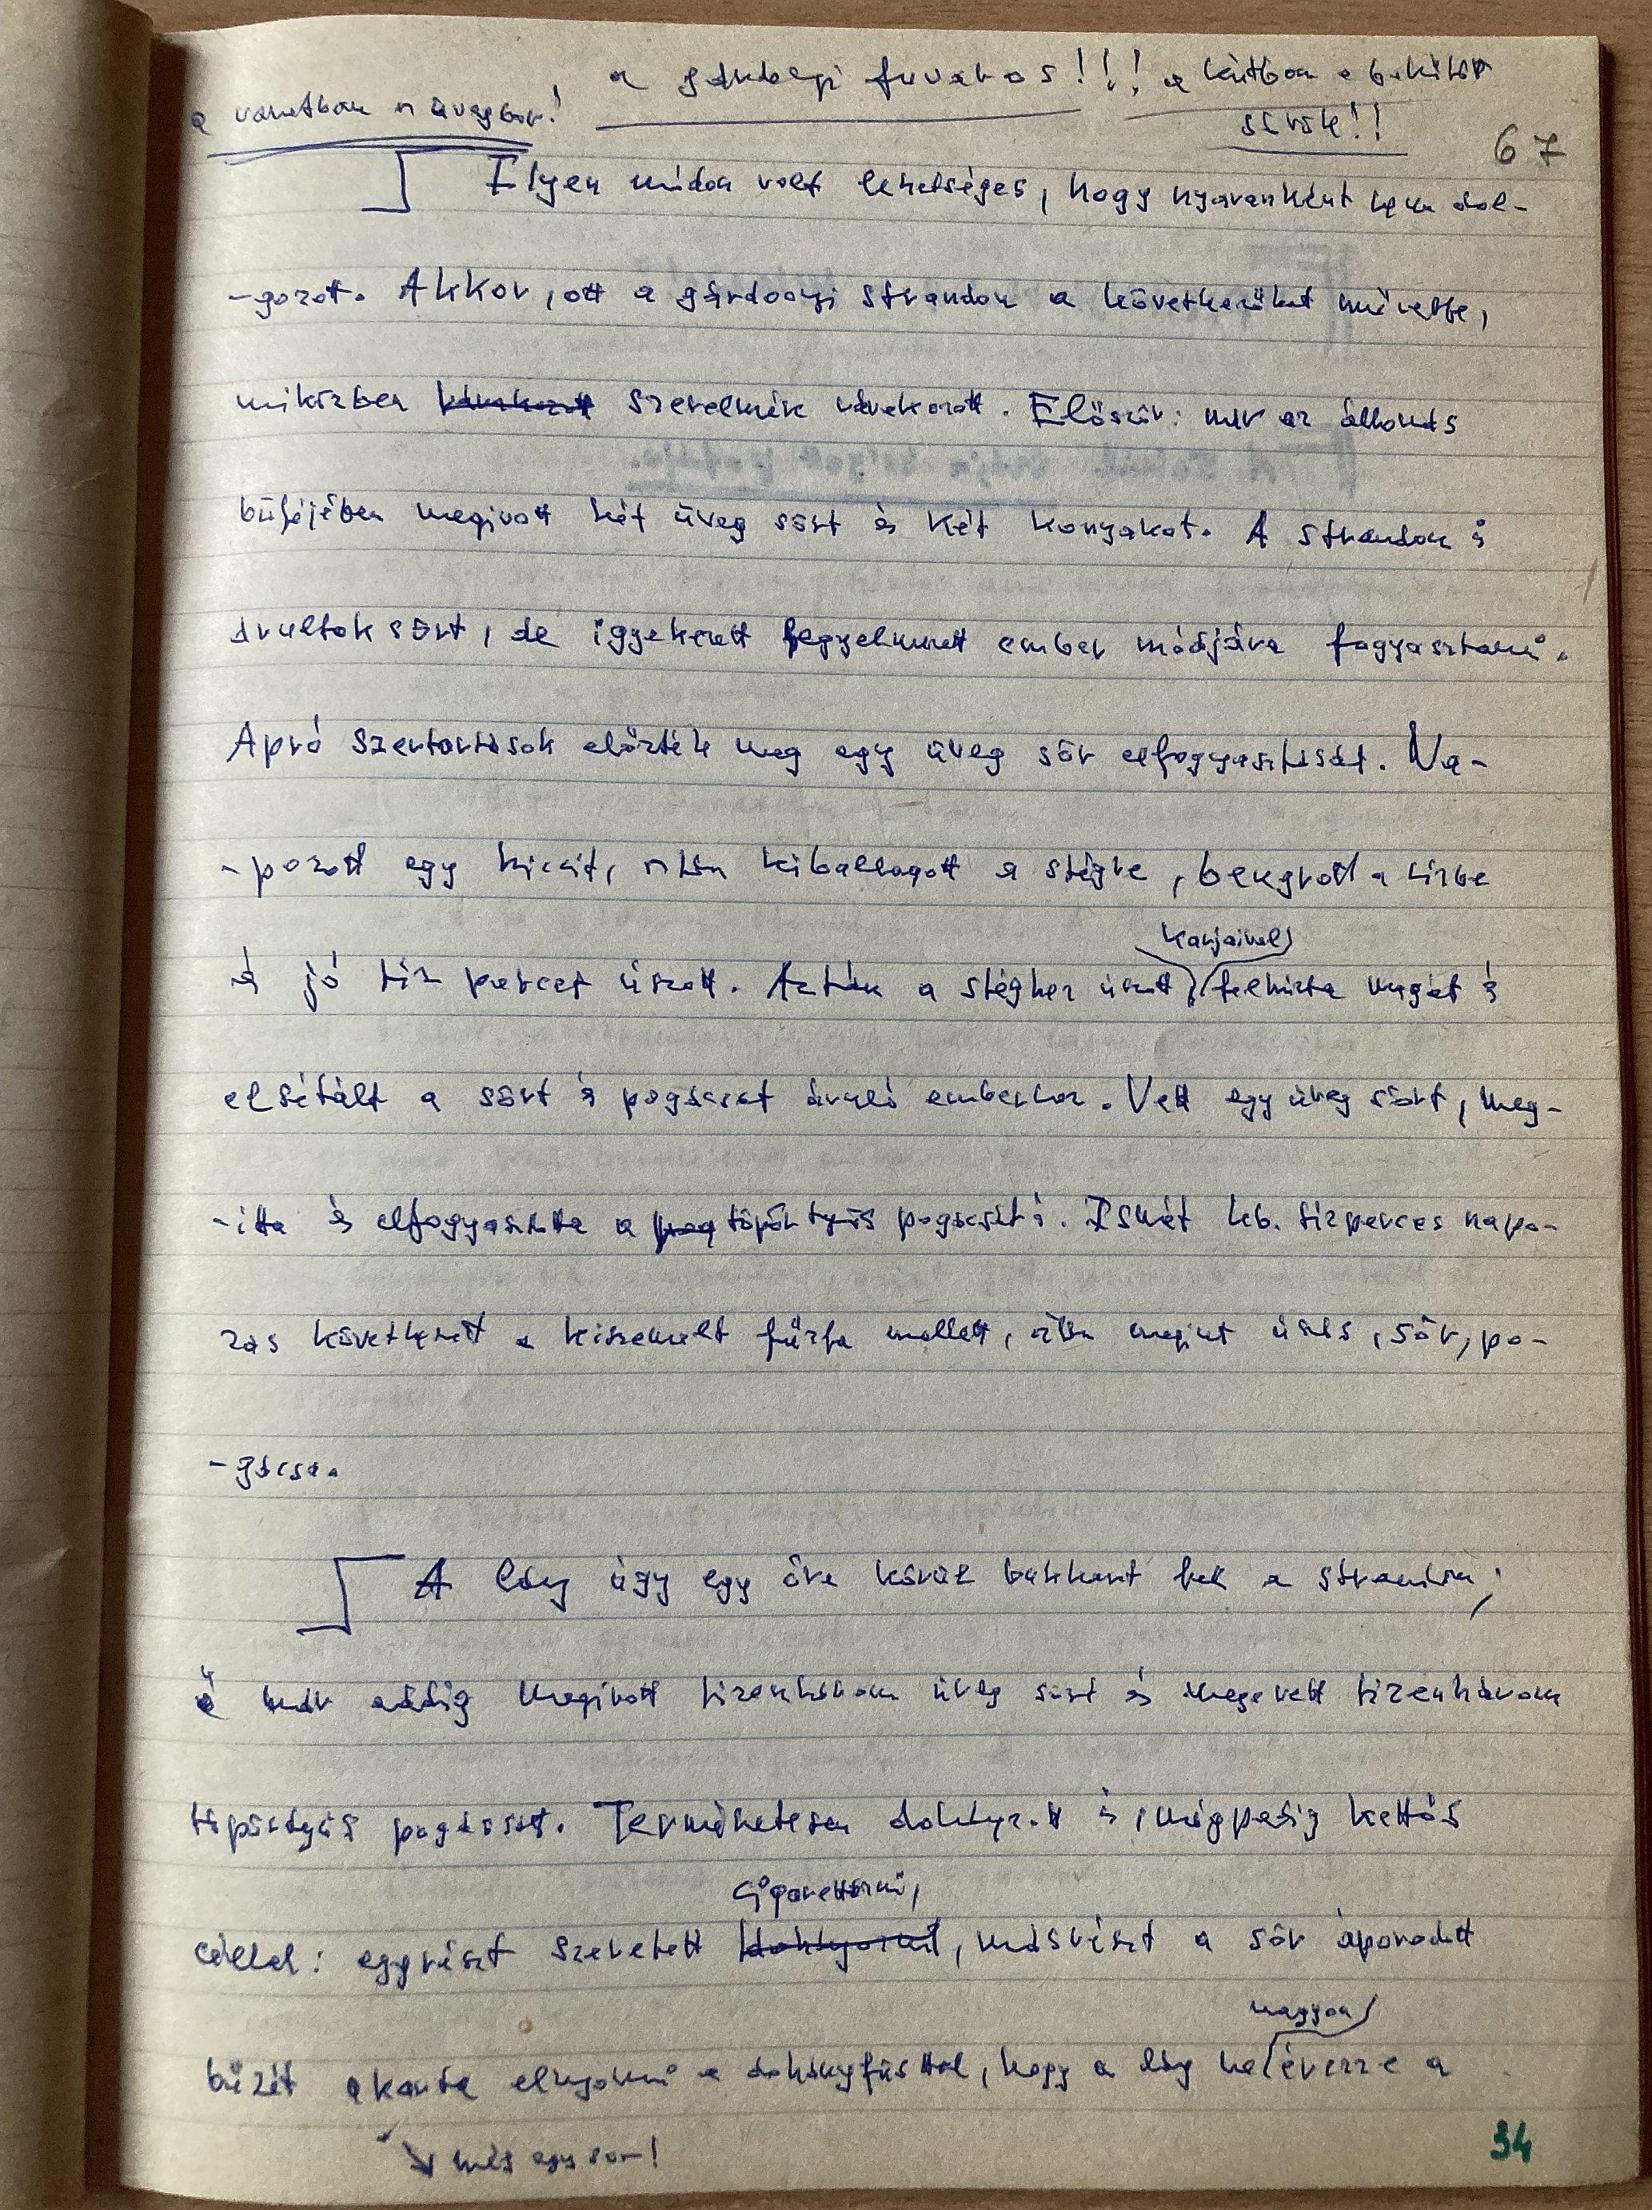 a vonatban is üvegbor! a gárdonyi fuvaros!!! a kútban a behűtött
sörök!!
67
Ilyen módon volt lehetséges, hogy nyaranként nem dol-
-gozott. Akkor, ott a gárdonyi strandon a következőket művelte,
miközben szerelmére várakozott. Először: már az állomás
büféjében megivott két üveg sört és két konyakot. A strandon is
árultak sört, de igyekezett fegyelmezett ember módjára fogyasztani.
Apró szertartások előzték meg egy üveg sör elfogyasztását. Na-
-pozott egy kicsit, aztán kiballagott a stégre, beugrott a vízbe
karjaival
és jó tíz percet úszott. Aztán a stéghez úszott, felhúzta magát és
elsétált a sört és pogácsát áruló emberhez. Vett egy üveg sört, meg-
-itta és elfogyasztotta a pog töpörtyűs pogácsát is. Ismét kb. tízperces napo-
zás következett a kiszemelt fűzfa mellett, aztán megint úszás, sör, po-
-gácsa.
A lány úgy egy óra körül bukkant fel a strandon;
ő már addig megivott tizenhárom üveg sört és megevett tizenhárom
töpörtyűs pogácsát. Természetesen dohányzott is, mégpedig kettős
cigarettázni,
céllal: egyrészt szeretett dohányozni, másrészt a sör áporodott
nagyon
bűzét akarta elnyomni a dohányfüsttel, hogy a lány ne érezze a
↘ még egy sor!
34